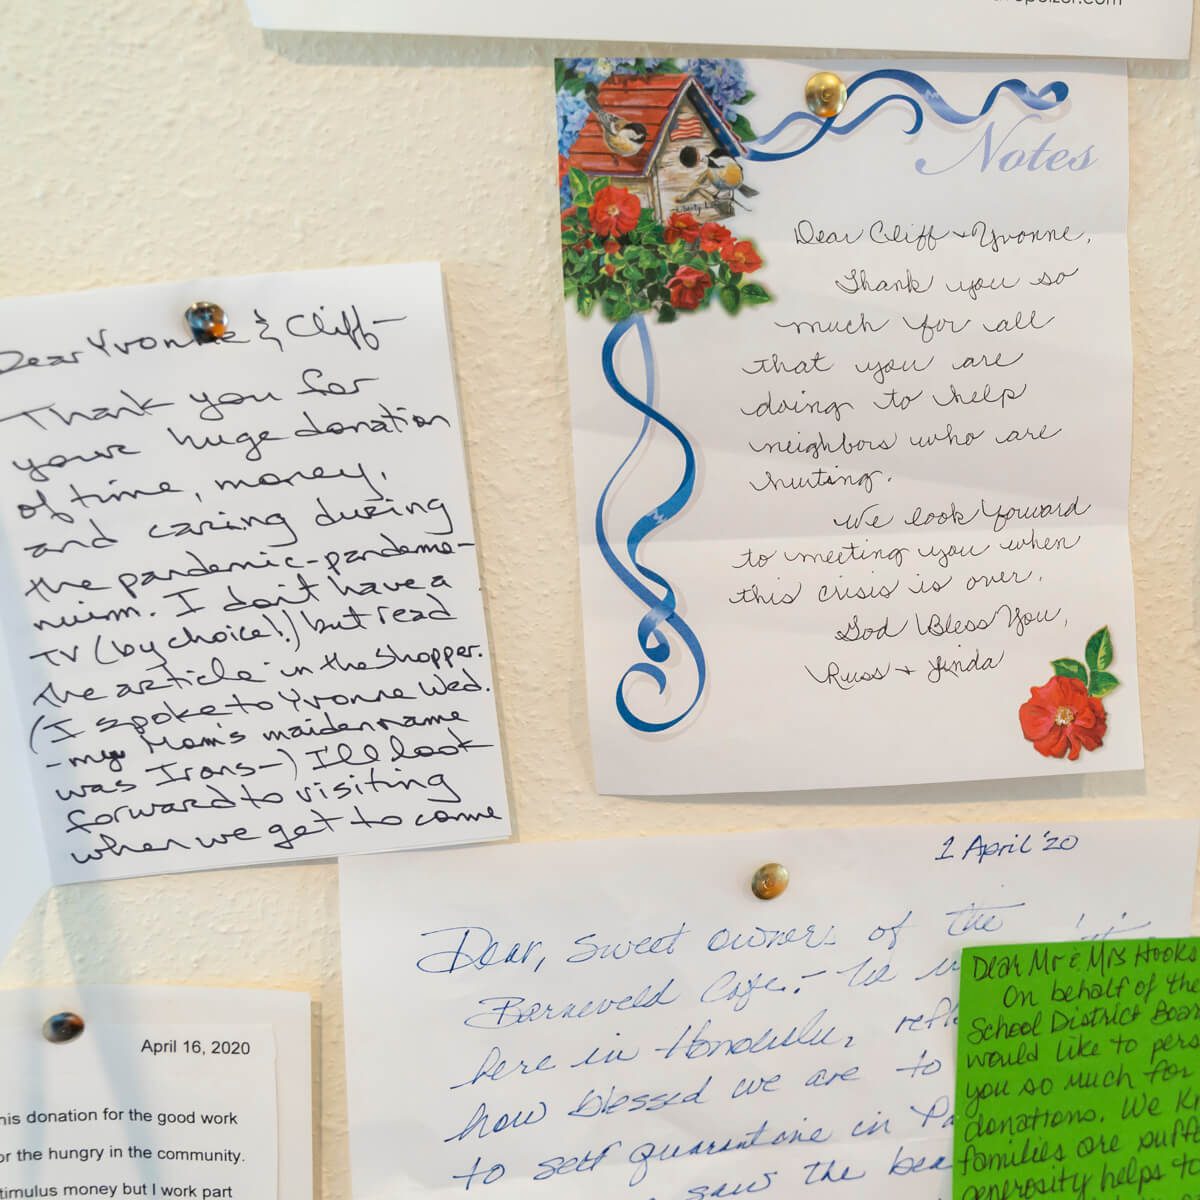 Notes
Dear Cliff + Yvonne,
Thank you so
much for all
that you are
doing to help
neighbors who are
hurting.
We look forward
to meeting you when
this crisis is over.
God Bless You,
Russ + Linda
Dear Yvonne & Cliff-
Thank you for
your huge donation
of time, money,
and caring during
the pandemic-pandemo-
nium. I don't have a
TV (by choice!) but read
the article in the Shopper.
(I spoke to Yvonne Wed.
- my Mom's maiden name
was Irons-) I'll look
forward to visiting
when we get to come
1 April '20
Dear, sweet owners of the
Barneveld Cafe. - 
here in Honolulu, refl
how blessed we are to
to self quarantine in Pa
saw the bea
Dear Mr & Mrs Hooks
On behalf of the
School District Boar
would like to pers
you so much for
donations. We Kn
families are suff
generosity helps to
April 16, 2020
his donation for the good work
or the hungry in the community.
timulus money but I work part